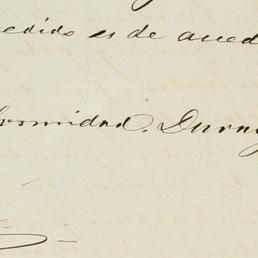 edido es de acced
ormidad. Durang